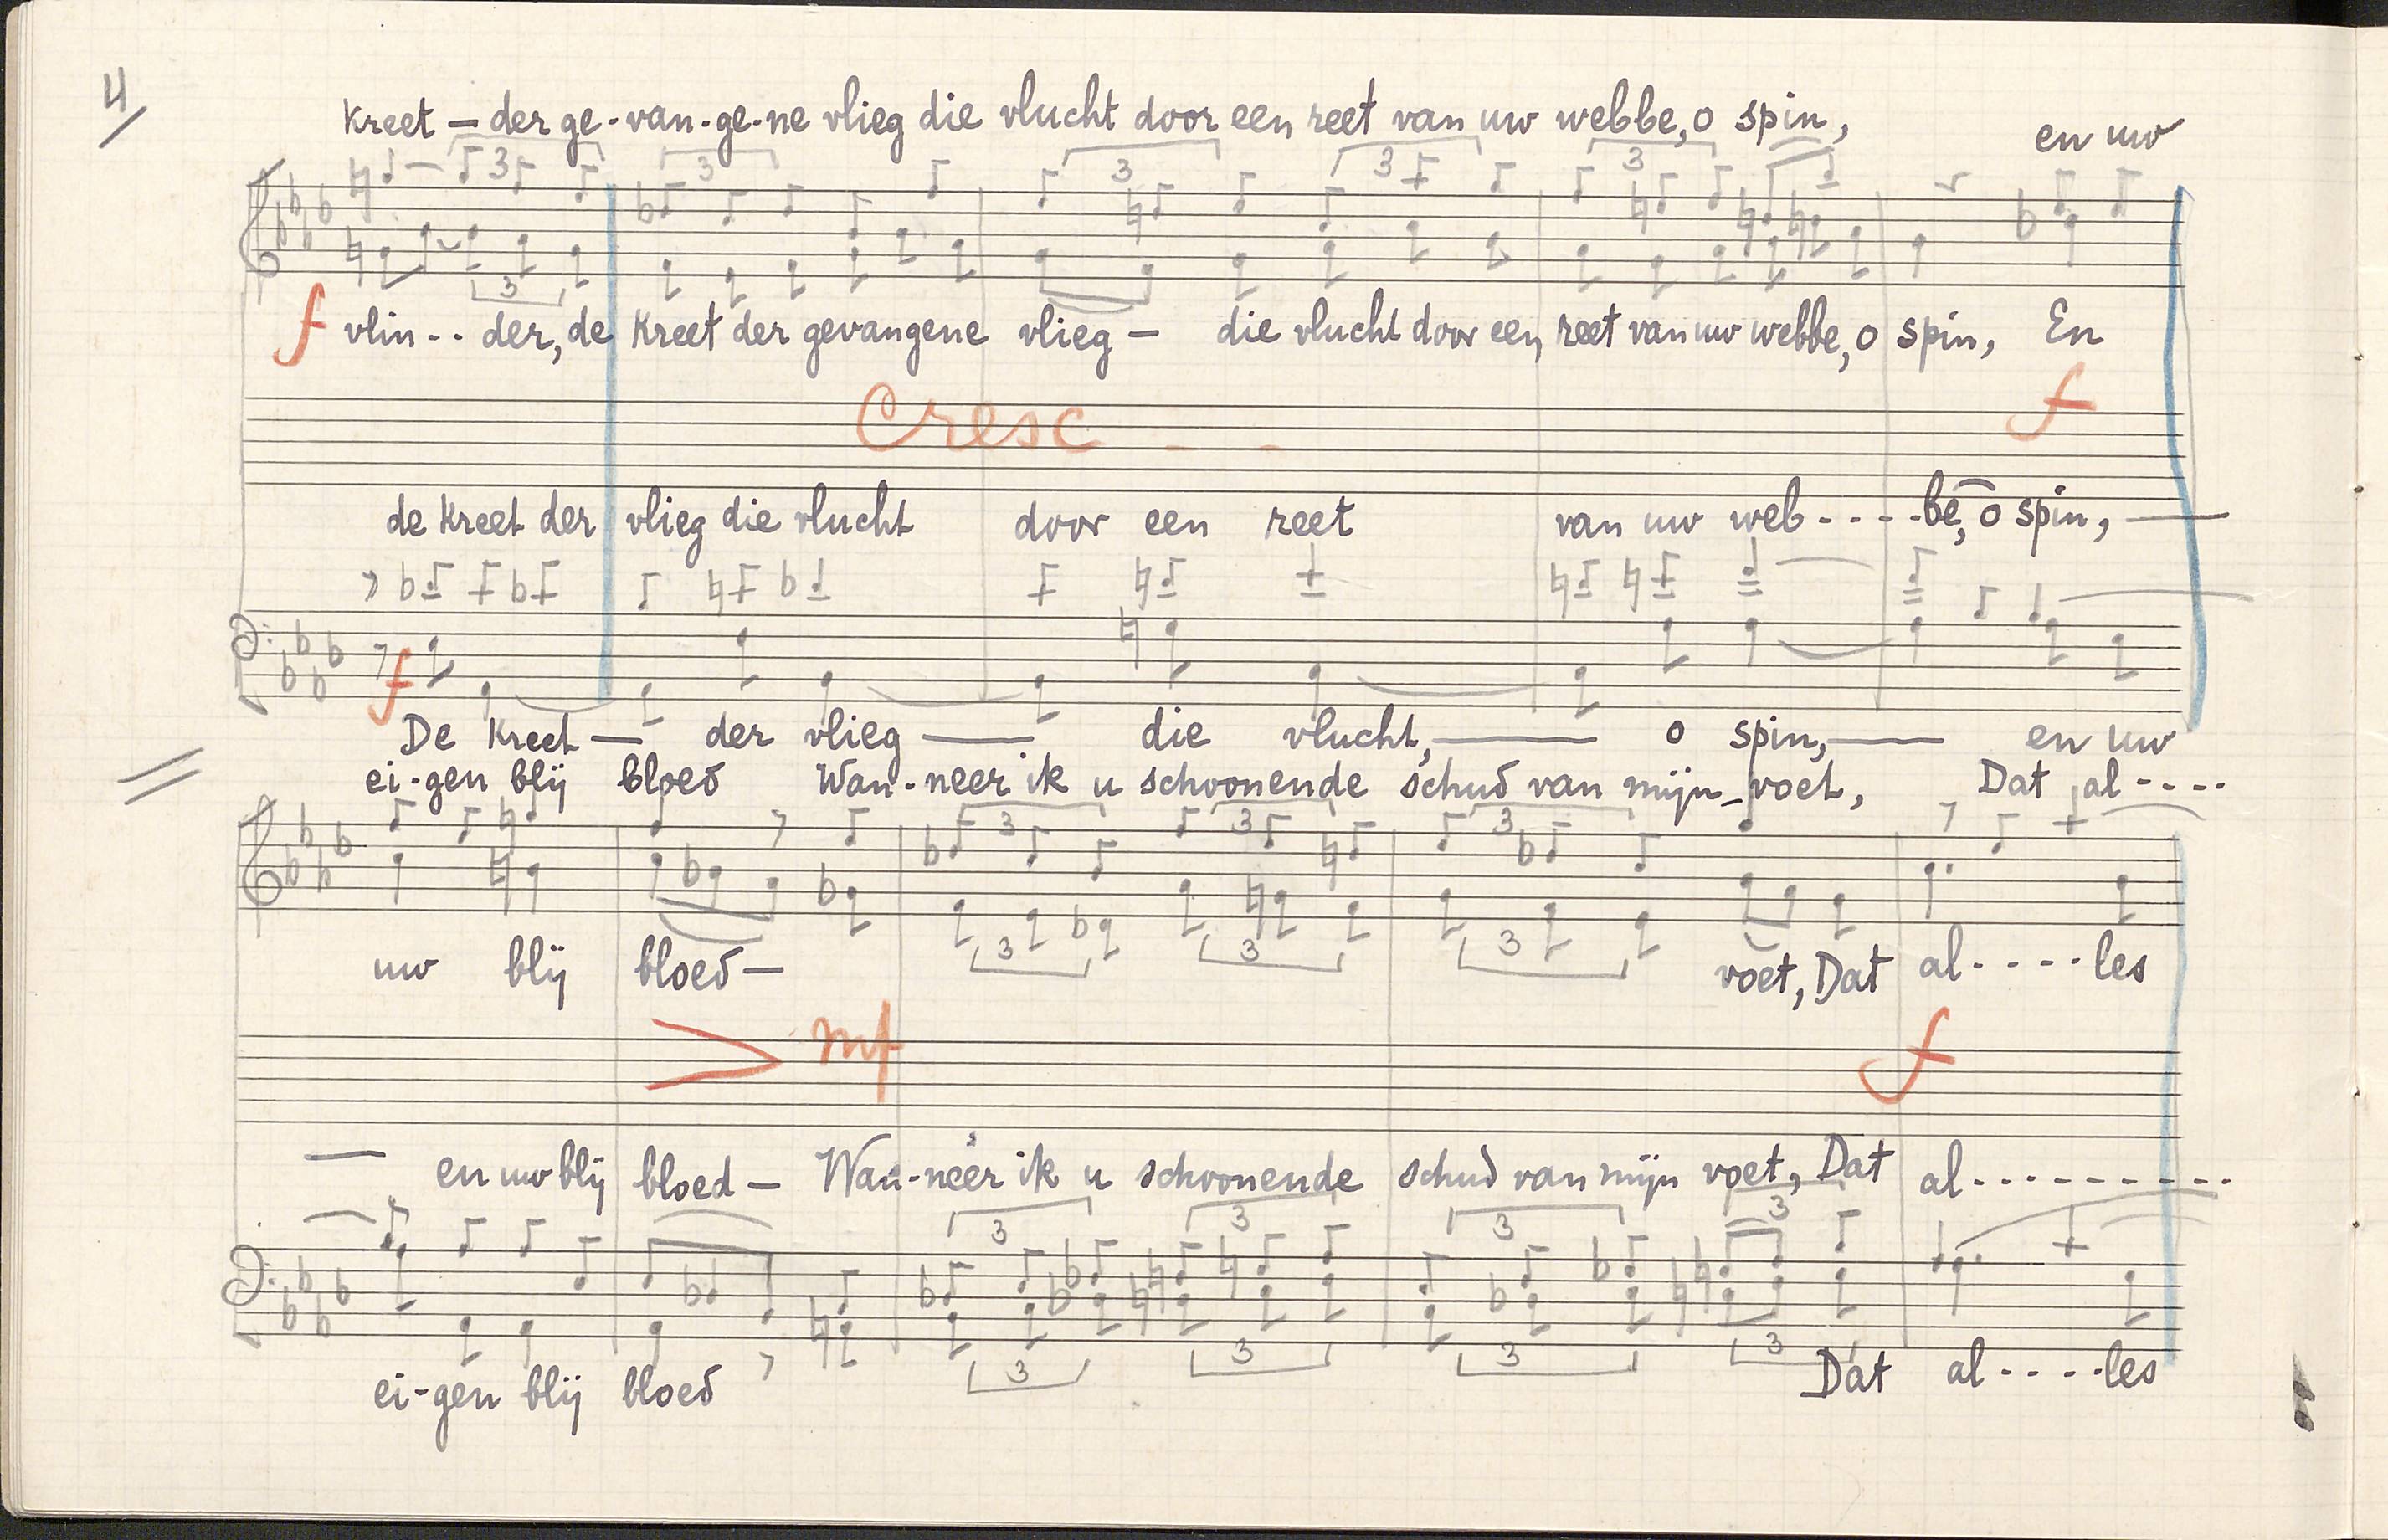 4/
Kreet — der ge-van-ge-ne vlieg die vlucht door een reet van uw webbe, o spin, en uw
3 3 3 3 3
3
f vlin-- der, de Kreet der gevangene vlieg — die vlucht door een reet van uw webbe, o spin, En
Cresc - - f
de Kreet der vlieg die vlucht door een reet van uw web----be, o spin, —
f
De Kreet — der vlieg — die vlucht, — o spin, — en uw
ei-gen blij bloed Wan-neer ik u schoonende schud van mijn voet, Dat al----
3 3 3
3 3 3
uw blij bloed — voet, Dat al----les
mf f
— en uw blij bloed — Wan-neer ik u schoonende schud van mijn voet, Dat al----------
3 3 3 3
3 3 3 3
ei-gen blij bloed Dat al----les